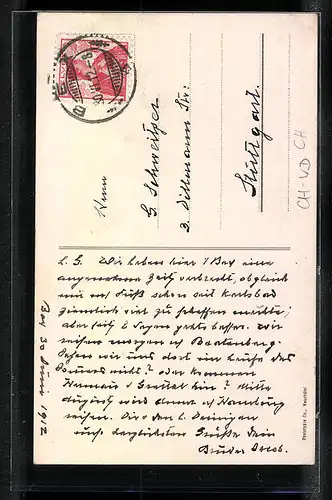 BEX
Herrn
G. Schweitzer
3. Dittmann Str.
Stuttgart.
CH-VD CH
L. G. Wir haben hier / Bex eine
angenehme Zeit verbracht, obgleich
mir mein Fuß schon seit Karlsbad
ziemlich viel zu schaffen machte;
aber seit 2 Tagen geht's besser. Wir
reisen morgen n/ Beatenberg.
Sehen wir uns dort im Laufe des
Sommers nicht? oder kommen
n/ hin? Mitte
August wird dann n/ Hamburg
reisen. Dir & den l. Deinigen
recht herzliche Grüße Dein
Bruder Jacob.
Bex 30 Juni 1912
Phototypie Co., Neuchâtel